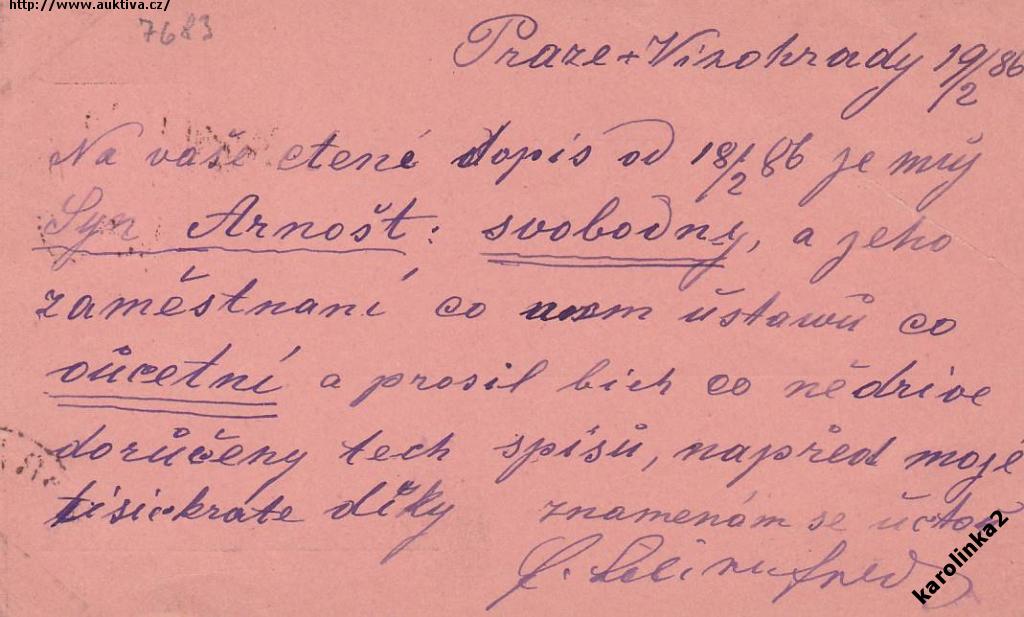 http://www.auktiva.cz/
7683
Praze + Vinohrady 19/2 86
Na vaše ctené dopis od 18/2 86 je můj
Syn Arnošt: svobodny, a jeho
zaměstnaní co ústawů co
oůcetní a prosil bich co nědrive
doručeny tech spisů, napřed moje
tisickrate díky znamenám se úctou
karolinka2